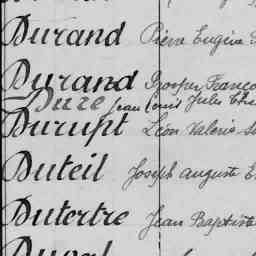 Durand Pierre Eugène
Durand Prosper Franço
Dure Jean Louis Jules Cha
Durupt Léon Valérie
Duteil Joseph Auguste E
Dutertre Jean Baptiste
Duval